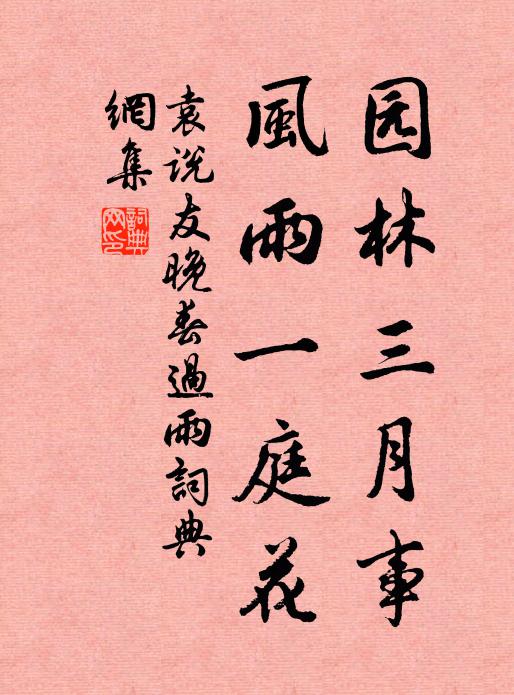 园林三月事
風雨一庭花
袁说友晚春過雨詞典
網集
詞典
网印